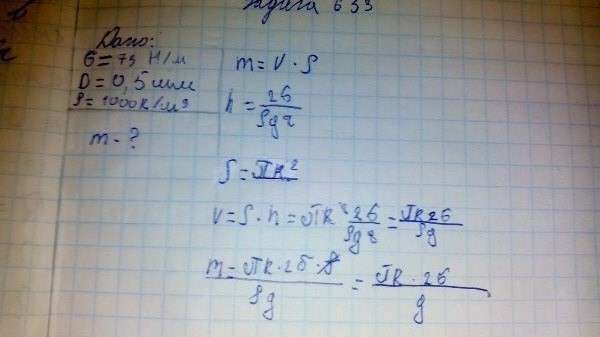 Задача 633
Дано:
б = 73 Н/м
D = 0,5 мм
ρ = 1000к/м³
m - ?
m = V · ρ
h = 2б / ρgr
S = πR²
V = S · h = πR² 2б / ρgr = πR2б / ρg
m = πR · 2б · ρ / ρg = πR · 2б / g